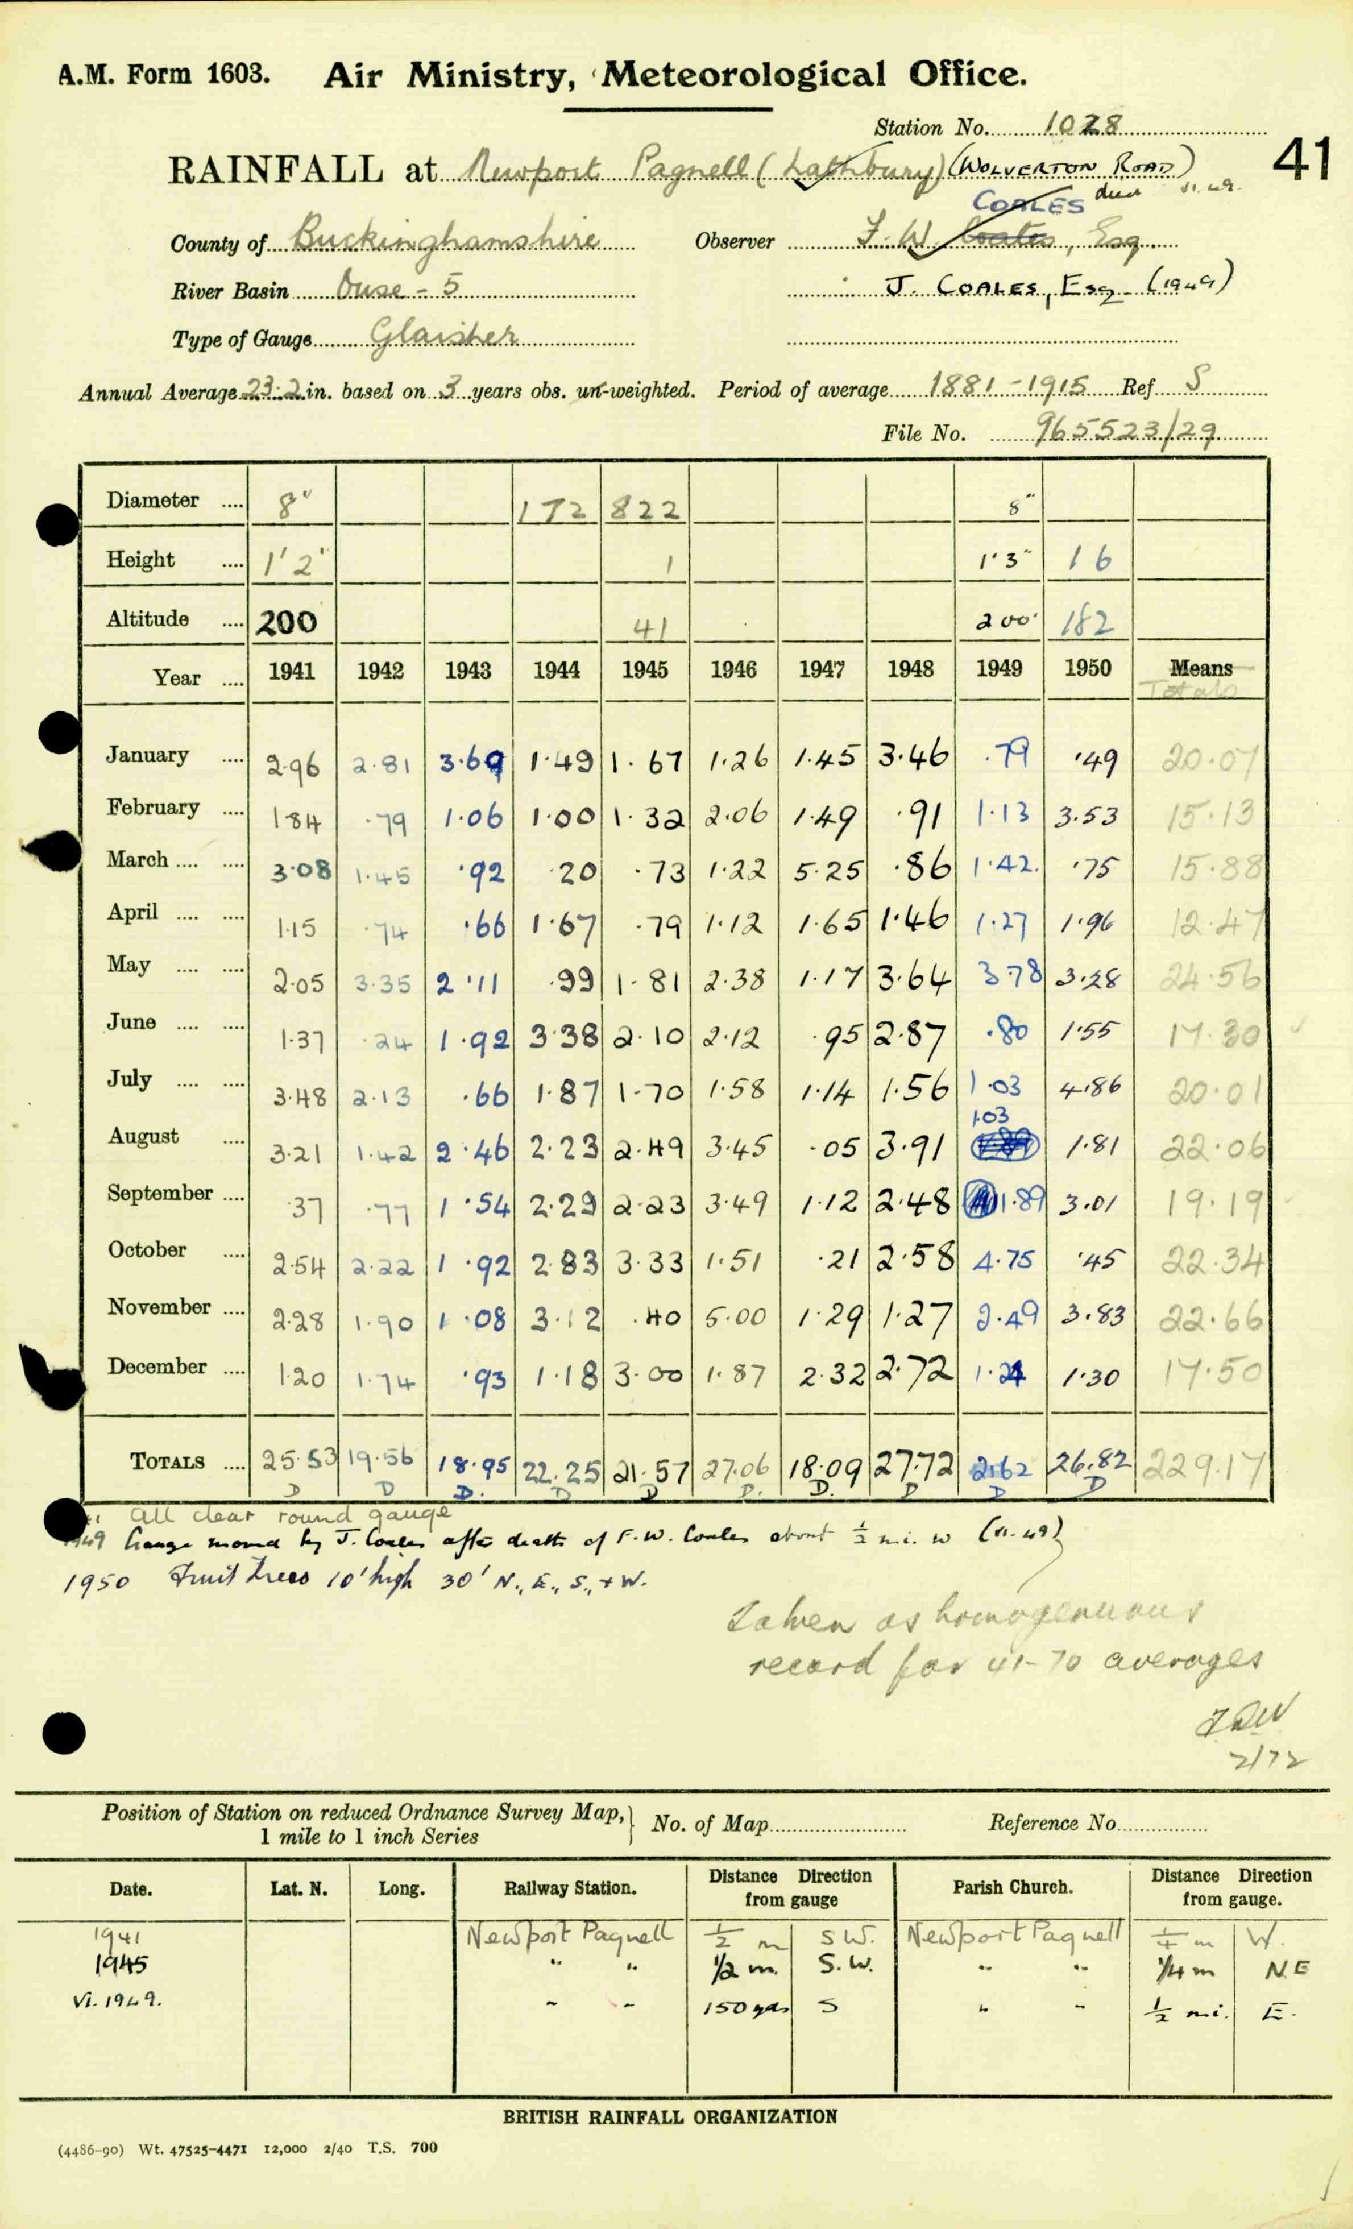 A.M. Form 1603. Air Ministry, Meteorological Office.
Station No. 1028
41
RAINFALL at Newport Pagnell (Lathbury) (WOLVERTON ROAD)
COALES died VI.49.
County of Buckinghamshire Observer F. W. Coates, Esq.
River Basin Ouse - 5 J. COALES, Esq. (1949)
Type of Gauge Glaisher
Annual Average 23.2 in. based on 3 years obs. un-weighted. Period of average 1881-1915 Ref S
File No. 965523/29
Diameter 8" 172 822 8"
Height 1' 2" 1 1'3" 1 6
Altitude 200 41 200' 182
Year 1941 1942 1943 1944 1945 1946 1947 1948 1949 1950 Means
Totals
January 2.96 2.81 3.69 1.49 1.67 1.26 1.45 3.46 .79 .49 20.07
February 1.84 .79 1.06 1.00 1.32 2.06 1.49 .91 1.13 3.53 15.13
March 3.08 1.45 .92 .20 .73 1.22 5.25 .86 1.42. .75 15.88
April 1.15 .74 .66 1.67 .79 1.12 1.65 1.46 1.27 1.96 12.47
May 2.05 3.35 2.11 .99 1.81 2.38 1.17 3.64 3.78 3.28 24.56
June 1.37 .24 1.92 3.38 2.10 2.12 .95 2.87 .80 1.55 17.30
July 3.48 2.13 .66 1.87 1.70 1.58 1.14 1.56 1.03 4.86 20.01
August 3.21 1.42 2.46 2.23 2.49 3.45 .05 3.91 1.03 1.81 22.06
September .37 .77 1.54 2.29 2.23 3.49 1.12 2.48 1.89 3.01 19.19
October 2.54 2.22 1.92 2.83 3.33 1.51 .21 2.58 4.75 .45 22.34
November 2.28 1.90 1.08 3.12 .40 5.00 1.29 1.27 2.49 3.83 22.66
December 1.20 1.74 .93 1.18 3.00 1.87 2.32 2.72 1.24 1.30 17.50
TOTALS 25.53 19.56 18.95 22.25 21.57 27.06 18.09 27.72 21.62 26.82 229.17
D D D. D D D. D. D D D
All clear round gauge
1949 Gauge moved by J. Coales after death of F. W. Coales about ½ mi. W (VI.49)
1950 Fruit trees 10' high 30' N., E., S., + W.
Taken as homogenuous
record for 41-70 averages
2/72
Position of Station on reduced Ordnance Survey Map,
1 mile to 1 inch Series
No. of Map Reference No
Date. Lat. N. Long. Railway Station. Distance from gauge Direction Parish Church. Distance from gauge. Direction
1941 Newport Pagnell ½ m SW. Newport Pagnell ¼ m W.
1945 " " ½ m. S.W. " " ¼ m NE
VI. 1949. " " 150 yds S " " ½ mi. E.
BRITISH RAINFALL ORGANIZATION
(4486-90) Wt. 47525-4471 12,000 2/40 T.S. 700